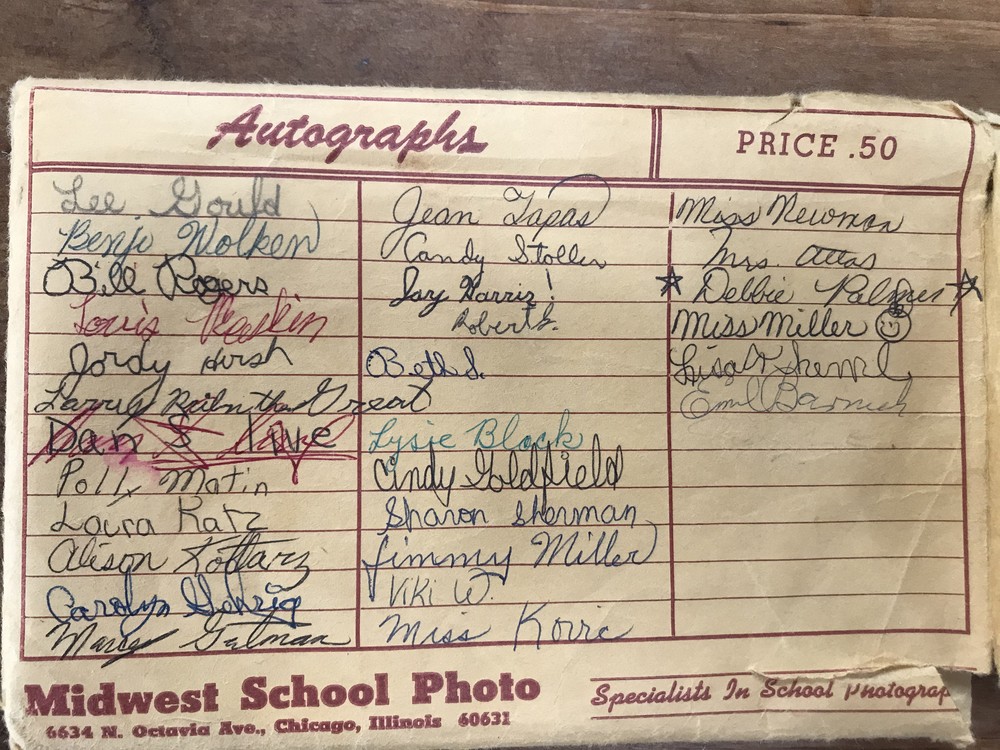 Autographs
PRICE .50
Lee Gould
Benji Wolken
Bill Rogers
Louis
Jordy Hirsh
Larry the Great
Dan S live
Polly Matin
Laura Katz
Alison Kottarz
Carolyn Gehrig
Marcy Gulman
Jean Tapas
Candy Stoller
Jay Harris!
Robert S.
Beth S.
Lysie Block
Cindy Goldfield
Sharon Sherman
Jimmy Miller
Viki W.
Miss Kovic
Miss Newman
Mrs. Attas
Debbie Palmer
Miss Miller
Lisa
Emil
Midwest School Photo
6634 N. Octavia Ave., Chicago, Illinois 60631
Specialists In School Photograp